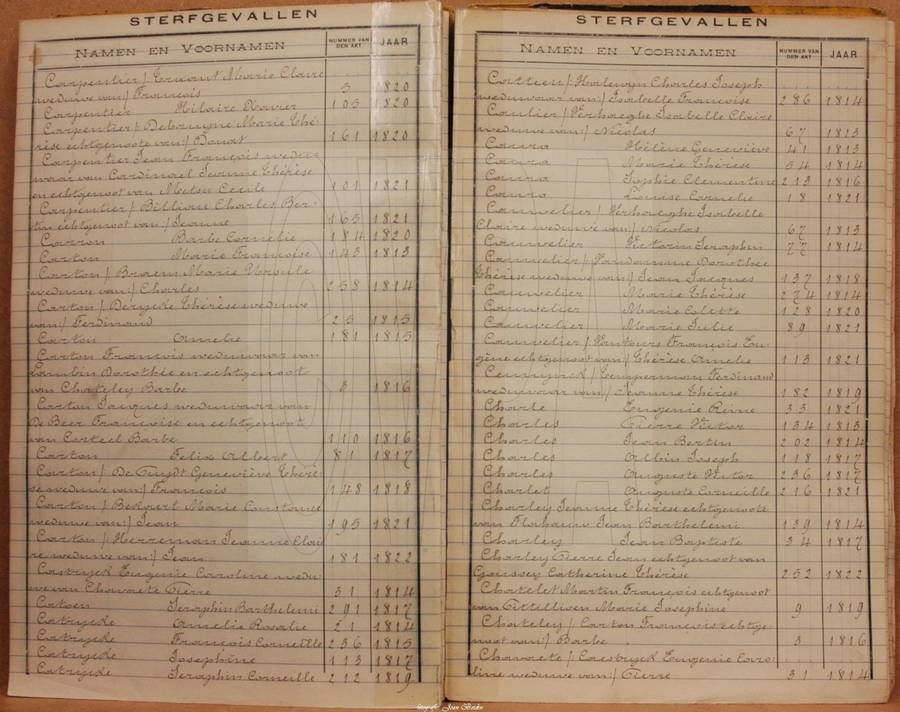 STERFGEVALLEN
NAMEN EN VOORNAMEN NUMMER VAN DEN AKT JAAR
Carpentier / Ernout Marie Claire
weduwe van / François 3 1820
Carpentier Hilaire Xavier 103 1820
Carpentier / Debruyne Marie Thé-
rèse echtgenoote van / Donat 161 1820
Carpentier Jean François weduw-
naar van Cardinael Jeanne Thérèse
en echtgenoot van Metsu Cecile 101 1821
Carpentier / Billiau Charles Ber-
tin echtgenoot van / Jeanne 165 1821
Carron Barbe Cornélie 184 1820
Carton Marie Françoise 143 1813
Carton / Braem Marie Ursule
weduwe van / Charles 258 1814
Carton / Derycke Thérèse weduwe
van / Ferdinand 25 1815
Carton Amelie 181 1815
Carton François weduwaar van
Lambin Dorothée en echtgenoot
van Chateley Barbe 3 1816
Carton Jacques weduwaar van
De Beer Françoise en echtgenoot
van Corteel Barbe 110 1816
Carton Felix Albert 81 1817
Carton / De Cuydt Geneviève Thérè-
se weduwe van / François 148 1818
Carton / Beküert Marie Constance
weduwe van / Jean 195 1821
Carton / Herreman Jeanne Clai-
re weduwe van / Jean 181 1822
Castryck Eugenie Caroline wedu-
we van Chavaete Pierre 31 1814
Catoen Seraphin Barthelemi 291 1817
Catrycke Amelie Rosalie 21 1814
Catrycke François Corneille 236 1815
Catrycke Josephine 113 1817
Catrycke Seraphin Corneille 212 1819
STERFGEVALLEN
NAMEN EN VOORNAMEN NUMMER VAN DEN AKT JAAR
Cotteen / Halewyn Charles Joseph
weduwaar van / Isabelle Françoise 286 1814
Caulier / Verhaeghe Isabelle Claire
weduwe van / Nicolas 67 1813
Caura Hélène Geneviève 41 1813
Caura Marie Thérèse 54 1814
Caura Sophie Clementine 213 1816
Caura Louise Cornelie 18 1821
Cauwelier / Verhaeghe Isabelle
Claire weduwe van / Nicolas 67 1813
Cauwelier Victorin Seraphin 77 1814
Cauwelier / Vandamme Dorothée
Thérèse weduwe van / Jean Jacques 137 1818
Cauwelier Marie Thérèse 274 1814
Cauwelier Marie Colette 128 1820
Cauwelier Marie Julie 89 1821
Cauwelier / François Eu-
gène echtgenoot van / Thérèse Amelie 113 1821
Ceuninck / Temperman Ferdinand
weduwaar van / Jeanne Thérèse 182 1819
Charle Eugenie Reine 33 1821
Charles Pierre Victor 134 1813
Charles Jean Bertin 202 1814
Charles Albin Joseph 118 1817
Charles Auguste Victor 236 1817
Charlet Auguste Corneille 216 1821
Charley Jeanne Thérèse echtgenoote
van Florhauw Jean Barthelemi 139 1814
Charley Jean Baptiste 34 1817
Charley Pierre Jean echtgenoot van
Goussey Catherine Thérèse 252 1822
Chatelet Martin François echtgenoot
van Marie Josephine 9 1819
Chateley / Carton François echtge-
noot van / Barbe 3 1816
Chavaete / Castryck Eugenie Caro-
line weduwe van / Pierre 31 1814